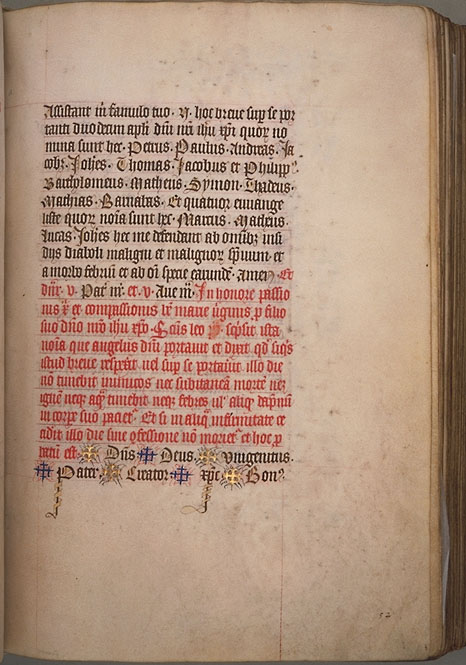 Assistant m̄ famulo tuo · N · hoc breue sup se por
tanti duodecim apl'i dn̄i nr̄i ihu xp̄i quor no
mina sunt hec · Petrus · Paulus · Andras · Ja
cob9 · Joh̄es · Thomas · Jacobus et Philipp9
Bartholomeus · Matheus · Symon · Thadeus ·
Mathias · Barnabas · Et quatuor euuange
liste quor noīa sunt hec · Marcus · Matheus ·
lucas · Joh̄es hec me defendant ab omībꝫ insi
dijs diaboli maligni et malignor sp̄uum · et
a morbo febrium et ab oī specie earunde · Amen · Et
· v · Pat nr̄ · et · v · Aue m̄ · In honore passio
nis et compassionis marie p filio
suo dn̄o nr̄o ihu xp̄o · leo ista
noīa que angelus dn̄i portauit et dixit qd siq's
istud breue vel sup se portauit illo die
nō timebit inimicos nec mortē neqꝫ
ignē neqꝫ aq̄ timebit neqꝫ febres ul' aliq
in corpe suo · Et si in aliq̄ infirmitate
illo die sine ꝯfessione nō et hoc p
est · Dn̄s · Deus · Vnigenitus ·
Pater · Creator · xp̄c · Bon9
52